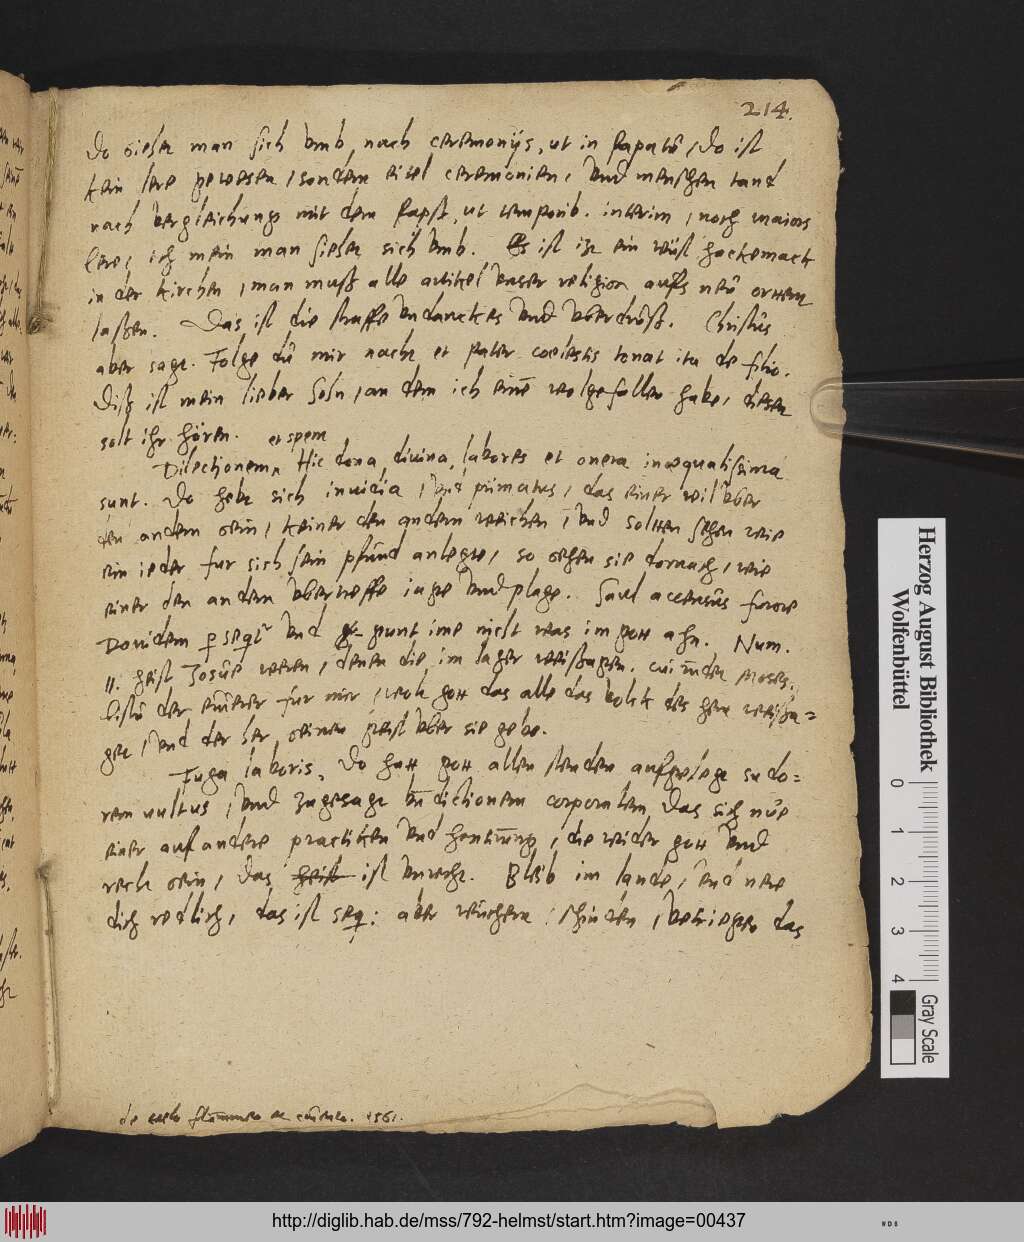 214.
Do siehet man sich umb, nach ceremonijs, ut in papatu, do ist
kein lere gewesen, sondern eitel ceremonien, und menschen tand
nach vergleichung mit dem Papst, ut temporib. interim, noch maioris
lere, ich mein man siehet sich umb. Es ist itzt ein wüst hackemack
in der kirchen, man muß alle artikel unser religion aufs neu ortern
laßen. Das ist die straffe undanckes und uberdruß. Christus
aber sagt. Folge du mir nach et pater coelestis tonat ita de filio.
Diß ist mein lieber Sohn, an dem ich eine wolgefallen habe, diesen
solt ihr hören. et spem
Dilectionem Hic dona divina, labores et onera inaequalissima
sunt. Do hebt sich invidia, und primatus, das einer wil uber
den andern sein, keiner den andern weichen, und solten sehen wie
ein ieder fur sich sein pfund anlegte, so sehen sie darnach, wie
einer den andern ubertreffe iage und plage. Saul accensus furore
Davidem persequitur und gunt ime nicht was im gott gahn. Num.
11. heist Josue weren, denen die im lager weissagen. cui inder Moses.
Bistu der eiuerer fur mir, wolt gott das alle das volck des hern weissa=
gete, und der her seinen geist uber sie gebe.
Fuga laboris, Do hatt gott allen stenden aufgelegt sudo=
rem vultus, und zugesagt benedictionem corporalem, Das sich nue
einer auf andere practiken und hantirung, die wider gott und
recht sein, das heist ist unrecht. Bleib im lande, und nere
dich redlich, das ist seq: aber wuchern, schinden, betriegen das
1561.
Herzog August Bibliothek
Wolfenbüttel
0 1 2 3 4
Gray Scale
http://diglib.hab.de/mss/792-helmst/start.htm?image=00437